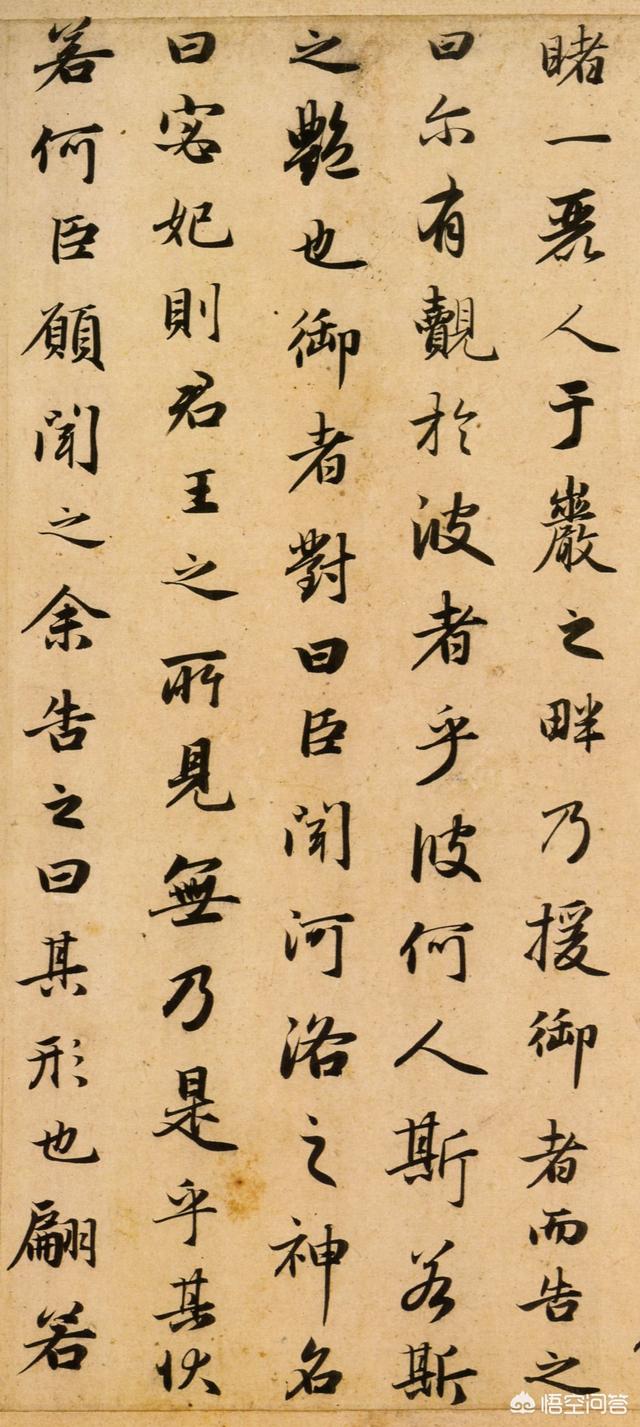 睹一麗人于巖之畔乃援御者而告之
曰尔有覿於彼者乎彼何人斯若斯
之豔也御者對曰臣聞河洛之神名
曰宓妃則君王之所見無乃是乎其状
若何臣願聞之余告之曰其形也翩若
悟空问答